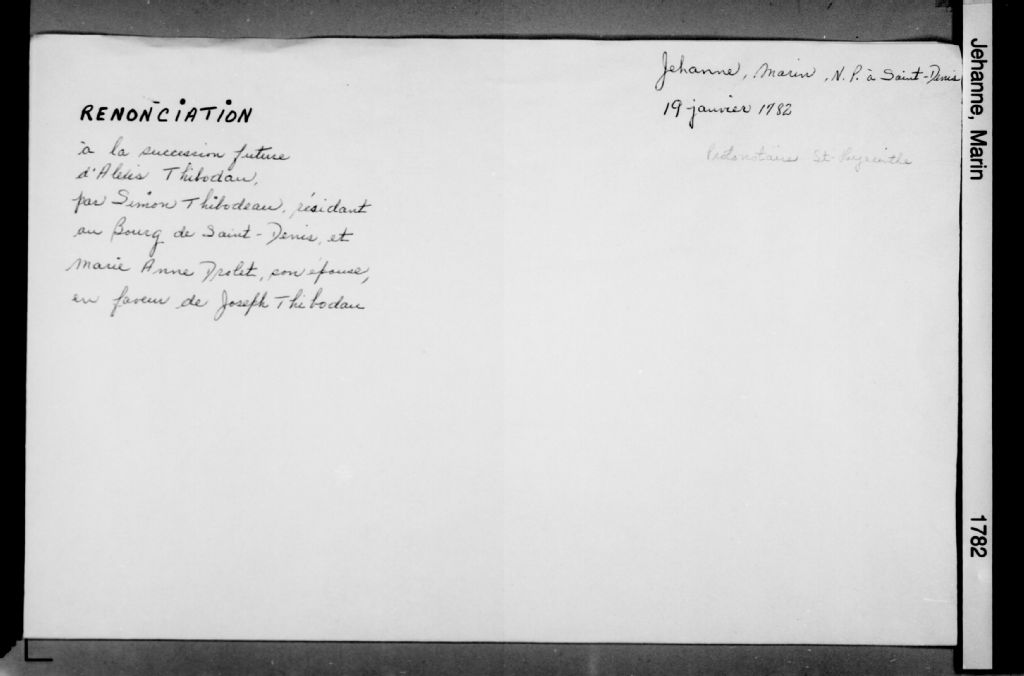 Jehanne, Marin, N.P. à Saint-Denis
19 janvier 1782
Protonotaire St-Hyacinthe
RENONCIATION
à la succession future
d'Alexis Thibodau,
par Simon Thibodeau, résidant
au Bourg de Saint-Denis, et
Marie Anne Drolet, son épouse,
en faveur de Joseph Thibodau
Jehanne, Marin
1782